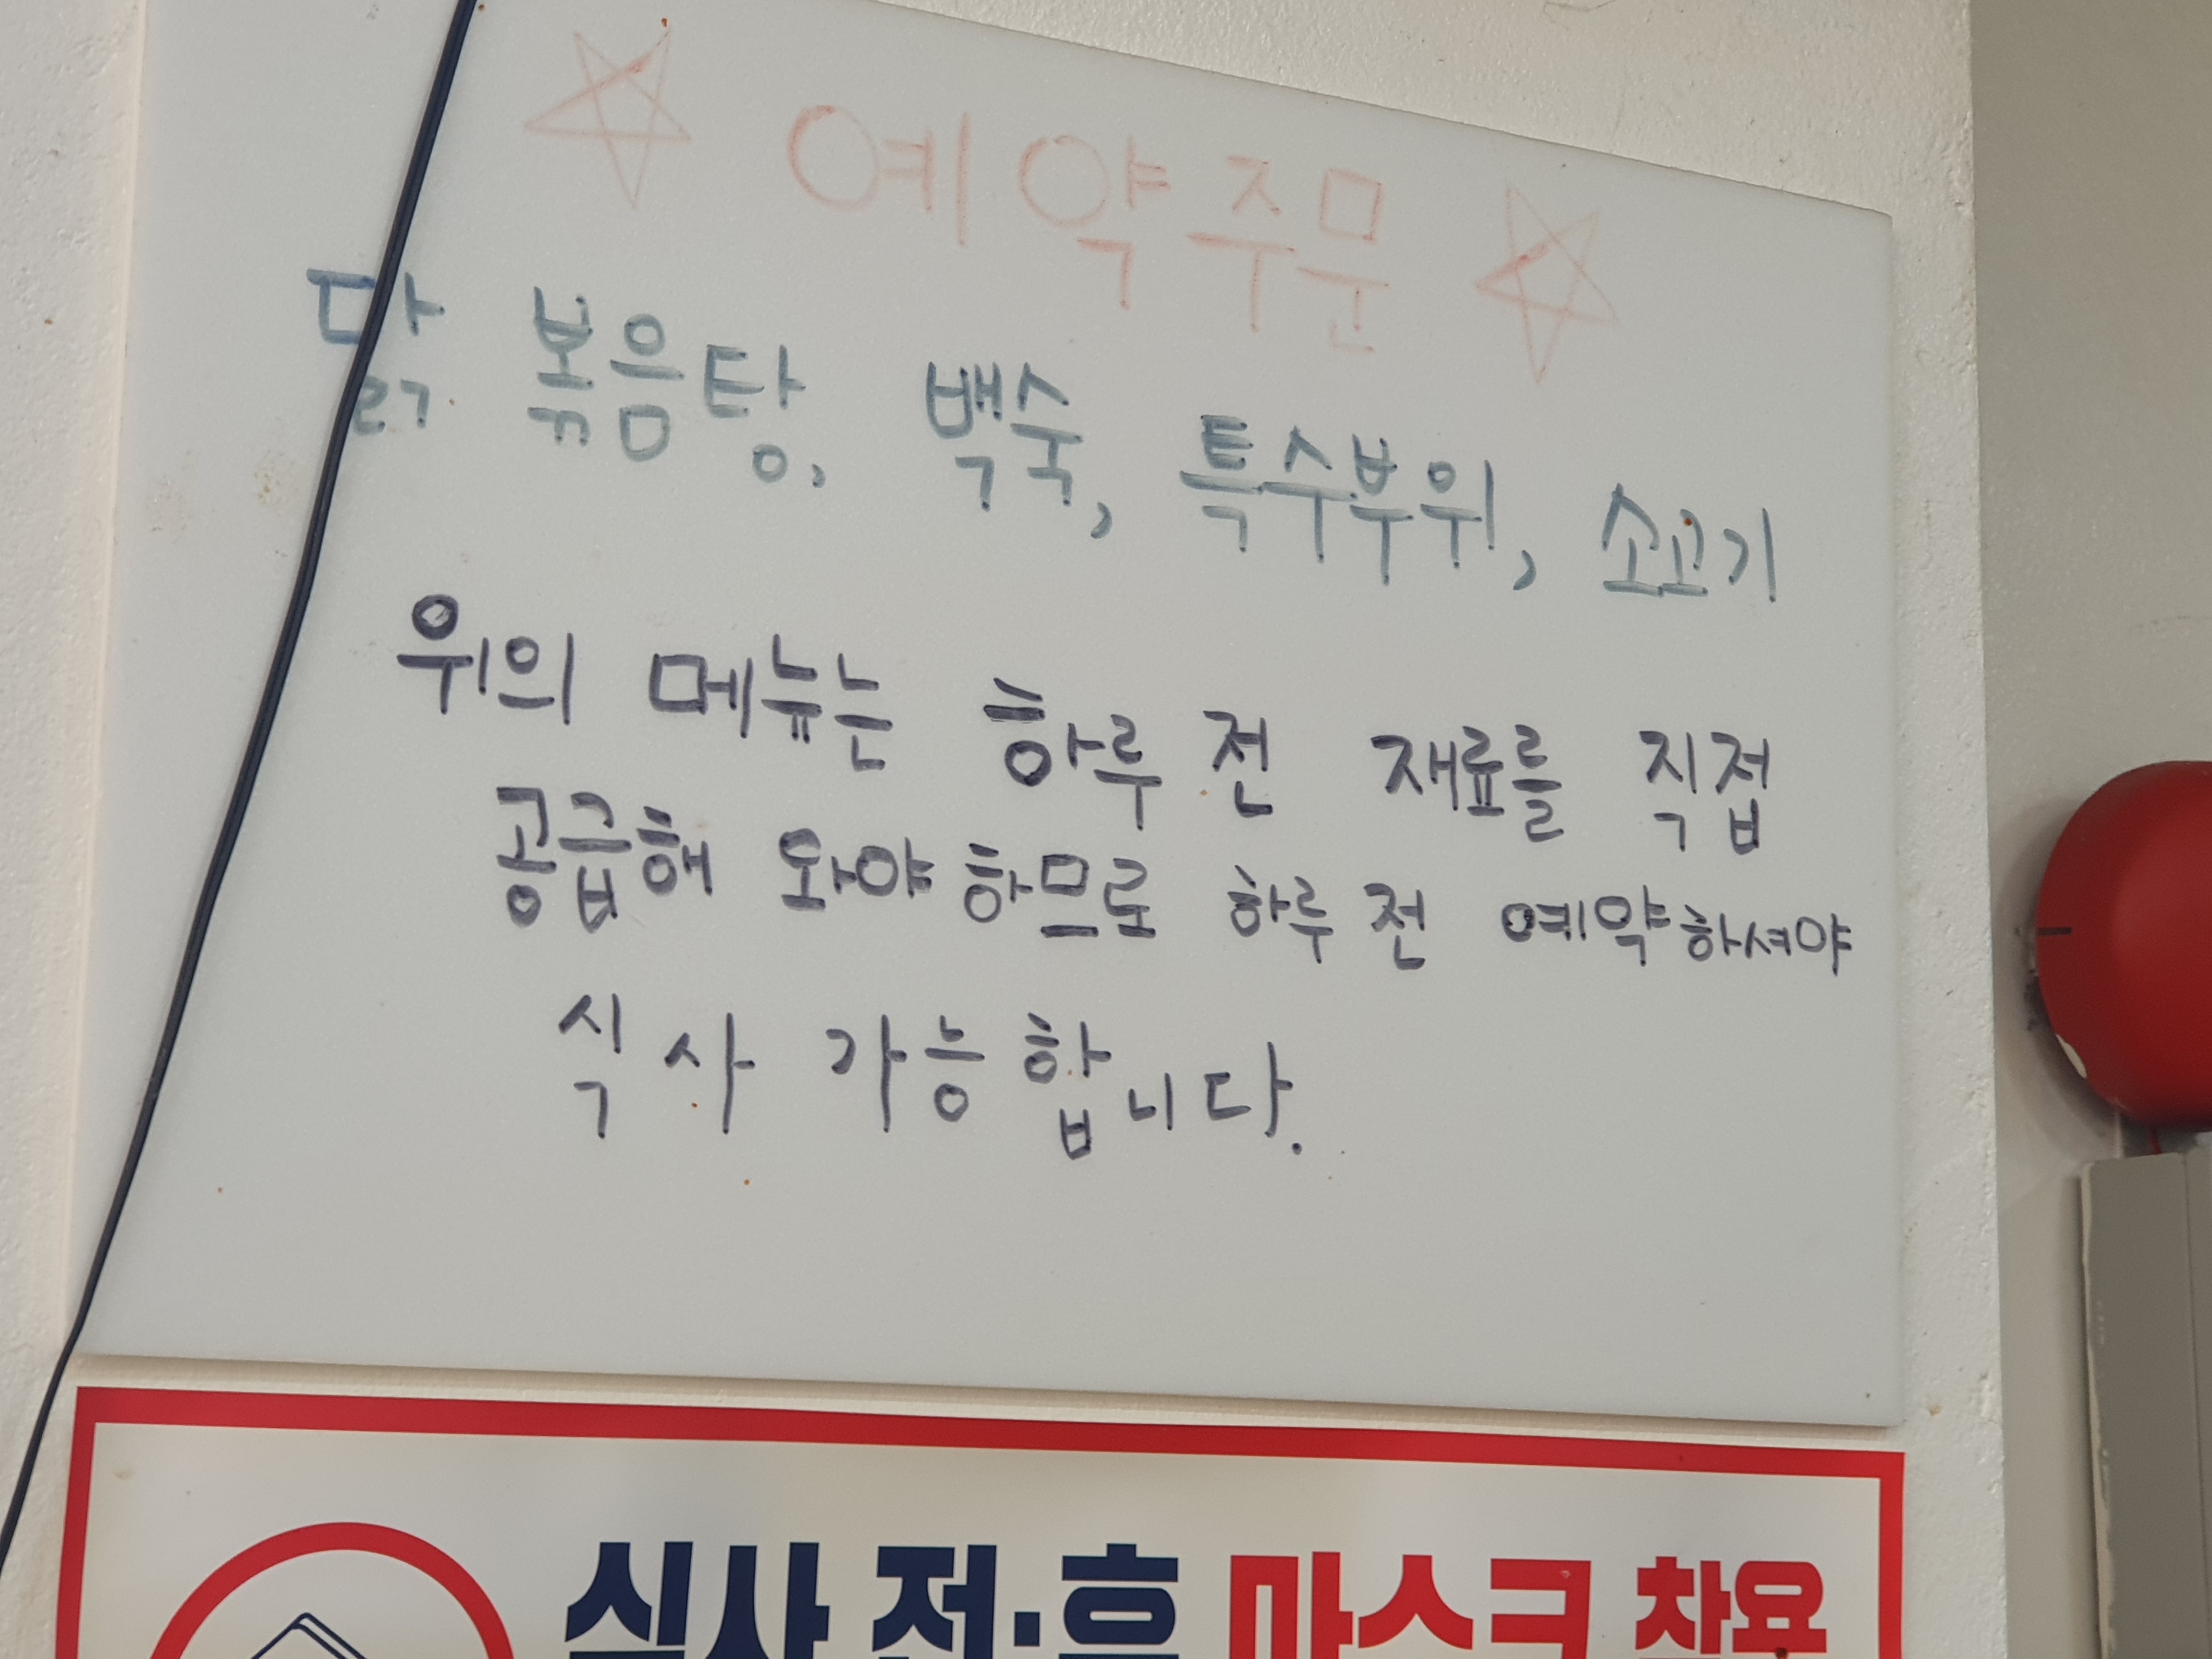 ☆ 예약주문 ☆
닭 볶음탕, 백숙, 특수부위, 소고기
위의 메뉴는 하루 전 재료를 직접
공급해 와야하므로 하루 전 예약하셔야
식사 가능합니다.
식사 전·후 마스크 착용